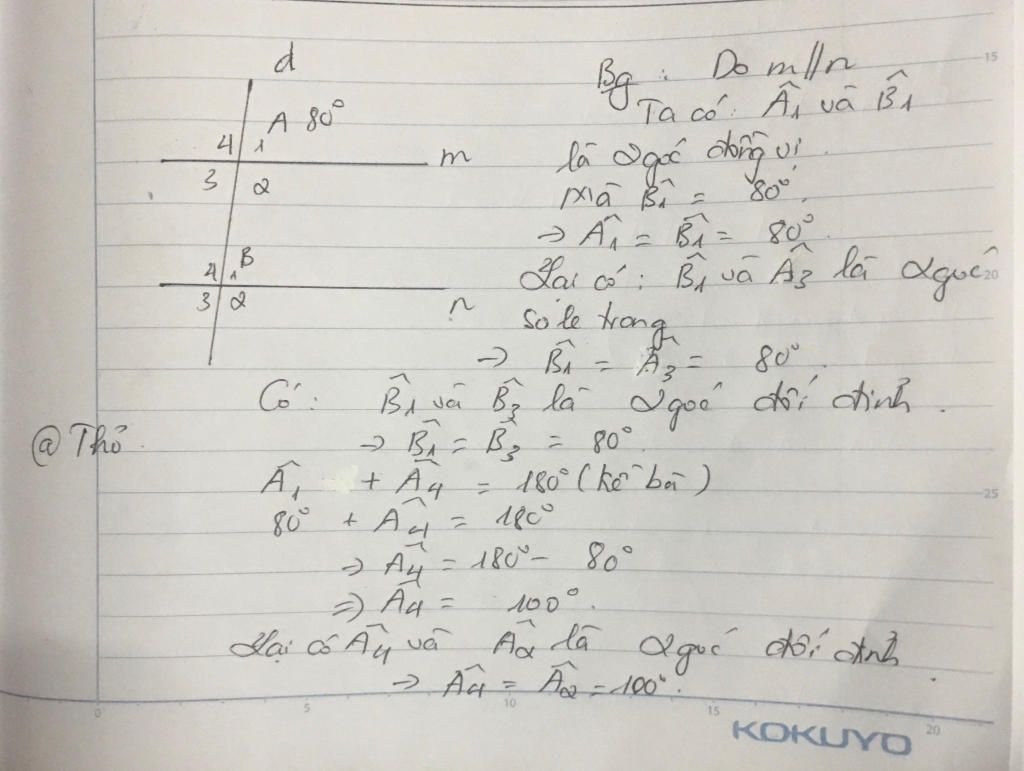 d
A 80°
4 1
m
3 2
4 1 B
3 2
n
Bg : Do m//n
Ta có: Â1 và B̂1
là 2 góc đồng vị.
Mà B̂1 = 80°.
→ Â1 = B̂1 = 80°.
Lại có: B̂1 và Â3 là 2 góc
so le trong
→ B̂1 = Â3 = 80°.
Có: B̂1 và B̂3 là 2 góc đối đỉnh.
@ Thỏ.
→ B̂1 = B̂3 = 80°
Â1 + Â4 = 180° (kề bù)
80° + Â4 = 180°
→ Â4 = 180° - 80°
⇒ Â4 = 100°.
Lại có Â4 và Â2 là 2 góc đối đỉnh.
→ Â4 = Â2 = 100°.
15
20
25
0 5 10 15 20
KOKUYO